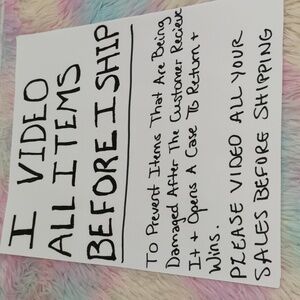 I VIDEO
ALL ITEMS
BEFORE I SHIP
To Prevent Items That Are Being
Damaged After The Customer Recieve
It + Opens A Case To Return +
Wins.
PLEASE VIDEO ALL YOUR
SALES BEFORE SHIPPING